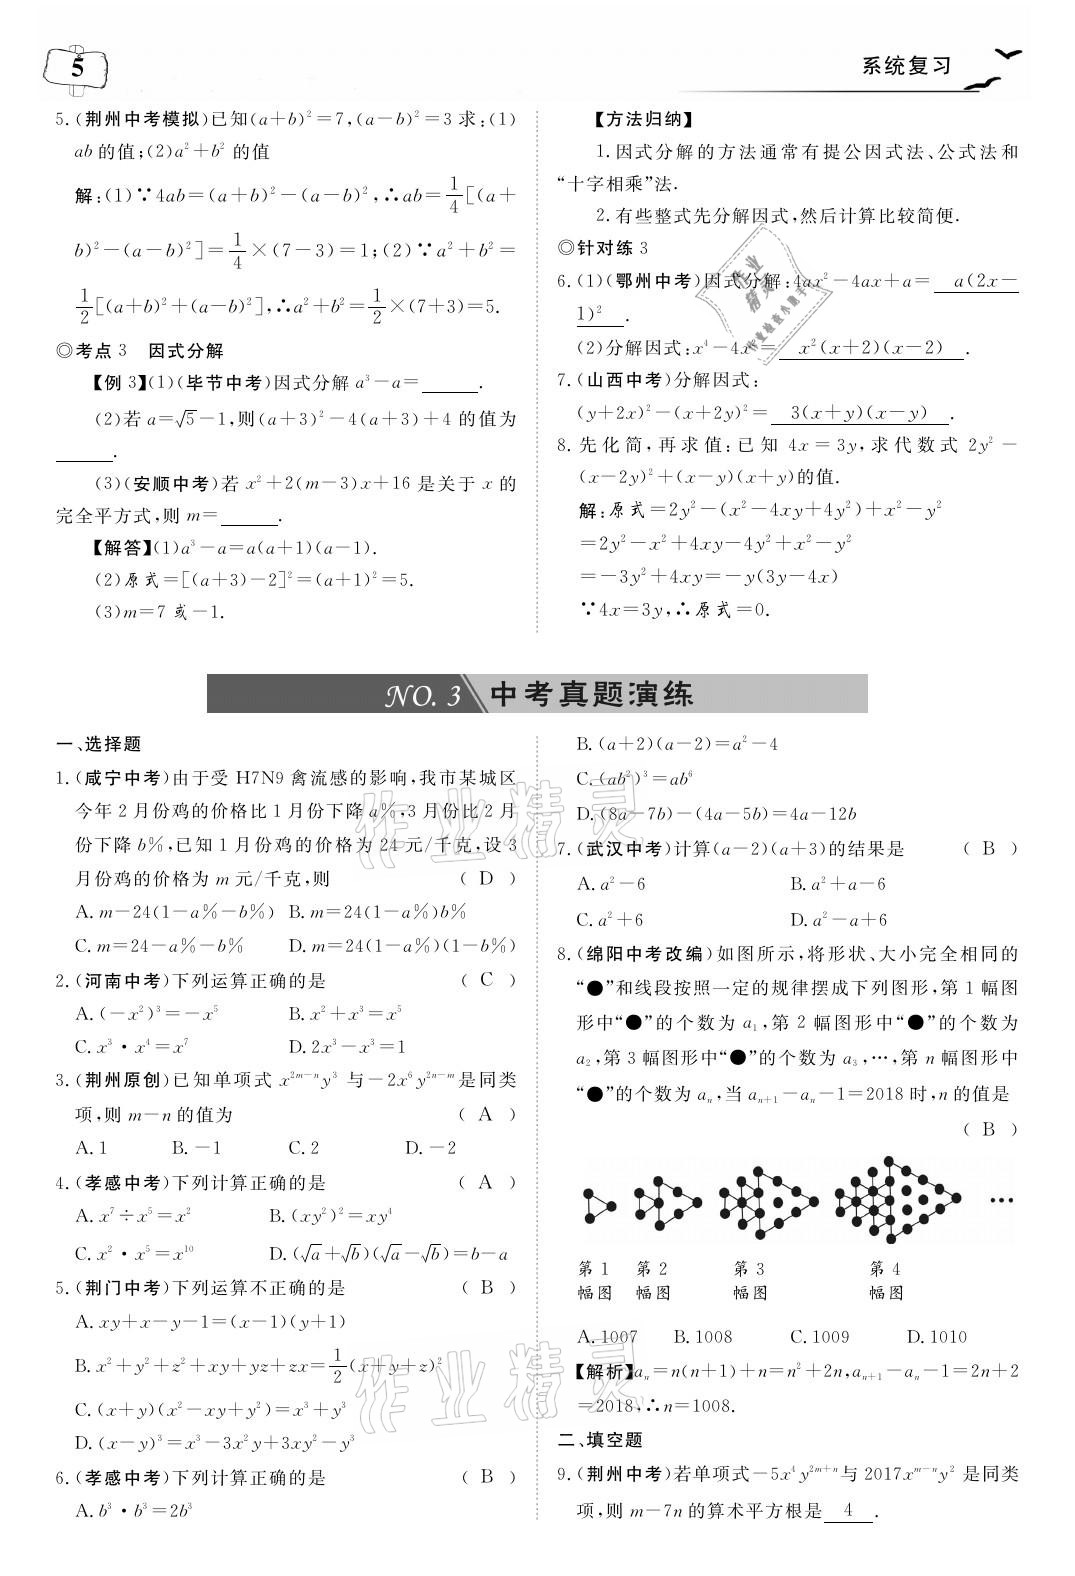 5
系统复习
5.(荆州中考模拟)已知(a+b)²=7,(a-b)²=3求:(1)
ab的值;(2)a²+b²的值
解:(1)∵4ab=(a+b)²-(a-b)²,∴ab=1/4[(a+
b)²-(a-b)²]=1/4×(7-3)=1;(2)∵a²+b²=
1/2[(a+b)²+(a-b)²],∴a²+b²=1/2×(7+3)=5.
◎考点3 因式分解
【例3】(1)(毕节中考)因式分解a³-a=______.
(2)若a=√5-1,则(a+3)²-4(a+3)+4的值为
______.
(3)(安顺中考)若x²+2(m-3)x+16是关于x的
完全平方式,则m=______.
【解答】(1)a³-a=a(a+1)(a-1).
(2)原式=[(a+3)-2]²=(a+1)²=5.
(3)m=7或-1.
【方法归纳】
1.因式分解的方法通常有提公因式法、公式法和
“十字相乘”法.
2.有些整式先分解因式,然后计算比较简便.
◎针对练3
6.(1)(鄂州中考)因式分解:4ax²-4ax+a= a(2x-
1)² .
(2)分解因式:x⁴-4x²= x²(x+2)(x-2) .
7.(山西中考)分解因式:
(y+2x)²-(x+2y)²= 3(x+y)(x-y) .
8.先化简,再求值:已知4x=3y,求代数式2y²-
(x-2y)²+(x-y)(x+y)的值.
解:原式=2y²-(x²-4xy+4y²)+x²-y²
=2y²-x²+4xy-4y²+x²-y²
=-3y²+4xy=-y(3y-4x)
∵4x=3y,∴原式=0.
NO.3 中考真题演练
一、选择题
1.(咸宁中考)由于受H7N9禽流感的影响,我市某城区
今年2月份鸡的价格比1月份下降a%,3月份比2月
份下降b%,已知1月份鸡的价格为24元/千克,设3
月份鸡的价格为m元/千克,则 ( D )
A.m=24(1-a%-b%) B.m=24(1-a%)b%
C.m=24-a%-b% D.m=24(1-a%)(1-b%)
2.(河南中考)下列运算正确的是 ( C )
A.(-x²)³=-x⁵ B.x²+x³=x⁵
C.x³·x⁴=x⁷ D.2x³-x³=1
3.(荆州原创)已知单项式x²ᵐ⁻ⁿy³与-2x⁶y²ⁿ⁻ᵐ是同类
项,则m-n的值为 ( A )
A.1 B.-1 C.2 D.-2
4.(孝感中考)下列计算正确的是 ( A )
A.x⁷÷x⁵=x² B.(xy²)²=xy⁴
C.x²·x⁵=x¹⁰ D.(√a+√b)(√a-√b)=b-a
5.(荆门中考)下列运算不正确的是 ( B )
A.xy+x-y-1=(x-1)(y+1)
B.x²+y²+z²+xy+yz+zx=1/2(x+y+z)²
C.(x+y)(x²-xy+y²)=x³+y³
D.(x-y)³=x³-3x²y+3xy²-y³
6.(孝感中考)下列计算正确的是 ( B )
A.b³·b³=2b³
B.(a+2)(a-2)=a²-4
C.(ab²)³=ab⁶
D.(8a-7b)-(4a-5b)=4a-12b
7.(武汉中考)计算(a-2)(a+3)的结果是 ( B )
A.a²-6 B.a²+a-6
C.a²+6 D.a²-a+6
8.(绵阳中考改编)如图所示,将形状、大小完全相同的
“●”和线段按照一定的规律摆成下列图形,第1幅图
形中“●”的个数为a₁,第2幅图形中“●”的个数为
a₂,第3幅图形中“●”的个数为a₃,…,第n幅图形中
“●”的个数为aₙ,当aₙ₊₁-aₙ-1=2018时,n的值是
( B )
…
第1 第2 第3 第4
幅图 幅图 幅图 幅图
A.1007 B.1008 C.1009 D.1010
【解析】aₙ=n(n+1)+n=n²+2n,aₙ₊₁-aₙ-1=2n+2
=2018,∴n=1008.
二、填空题
9.(荆州中考)若单项式-5x⁴y²ᵐ⁺ⁿ与2017xᵐ⁻ⁿy²是同类
项,则m-7n的算术平方根是 4 .
作业精灵
作业精灵